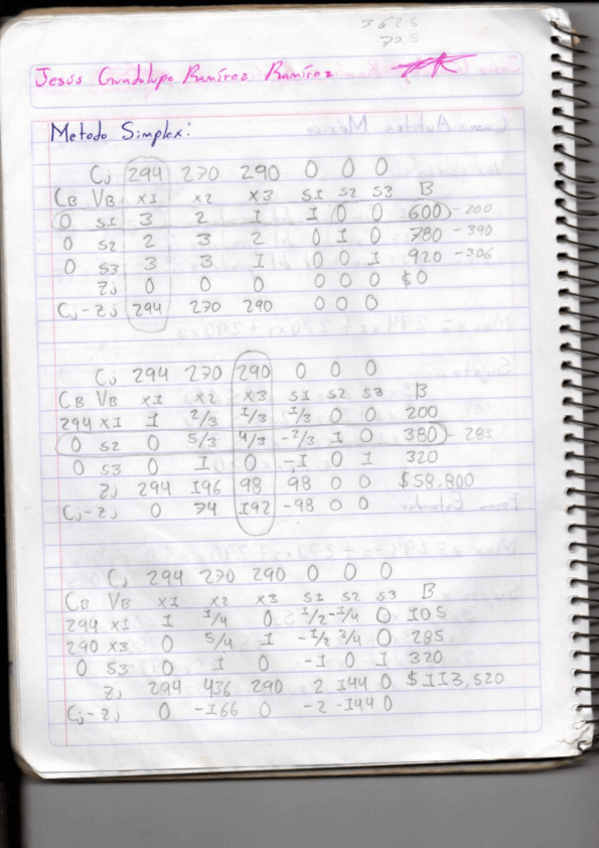 3625
705
Jesús Guadalupe Ramírez Ramírez
Metodo Simplex:
Cj 294 270 290 0 0 0
CB VB x1 x2 x3 s1 s2 s3 B
0 s1 3 2 1 1 0 0 600 -200
0 s2 2 3 2 0 1 0 780 -390
0 s3 3 3 1 0 0 1 920 -306
Zj 0 0 0 0 0 0 $0
Cj-Zj 294 270 290 0 0 0
Cj 294 270 290 0 0 0
CB VB x1 x2 x3 s1 s2 s3 B
294 x1 1 2/3 1/3 1/3 0 0 200
0 s2 0 5/3 4/3 -2/3 1 0 380 - 285
0 s3 0 1 0 -1 0 1 320
Zj 294 196 98 98 0 0 $58,800
Cj-Zj 0 74 192 -98 0 0
Cj 294 270 290 0 0 0
CB VB x1 x2 x3 s1 s2 s3 B
294 x1 1 1/4 0 1/2 -1/4 0 105
290 x3 0 5/4 1 -1/2 3/4 0 285
0 s3 0 1 0 -1 0 1 320
Zj 294 436 290 2 144 0 $113,520
Cj-Zj 0 -166 0 -2 -144 0